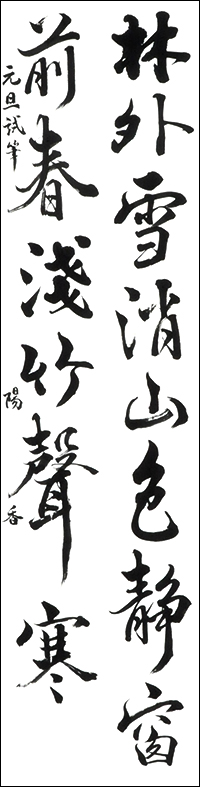 林外雪消山色静窗
前春淺竹聲寒
元旦試筆
陽香